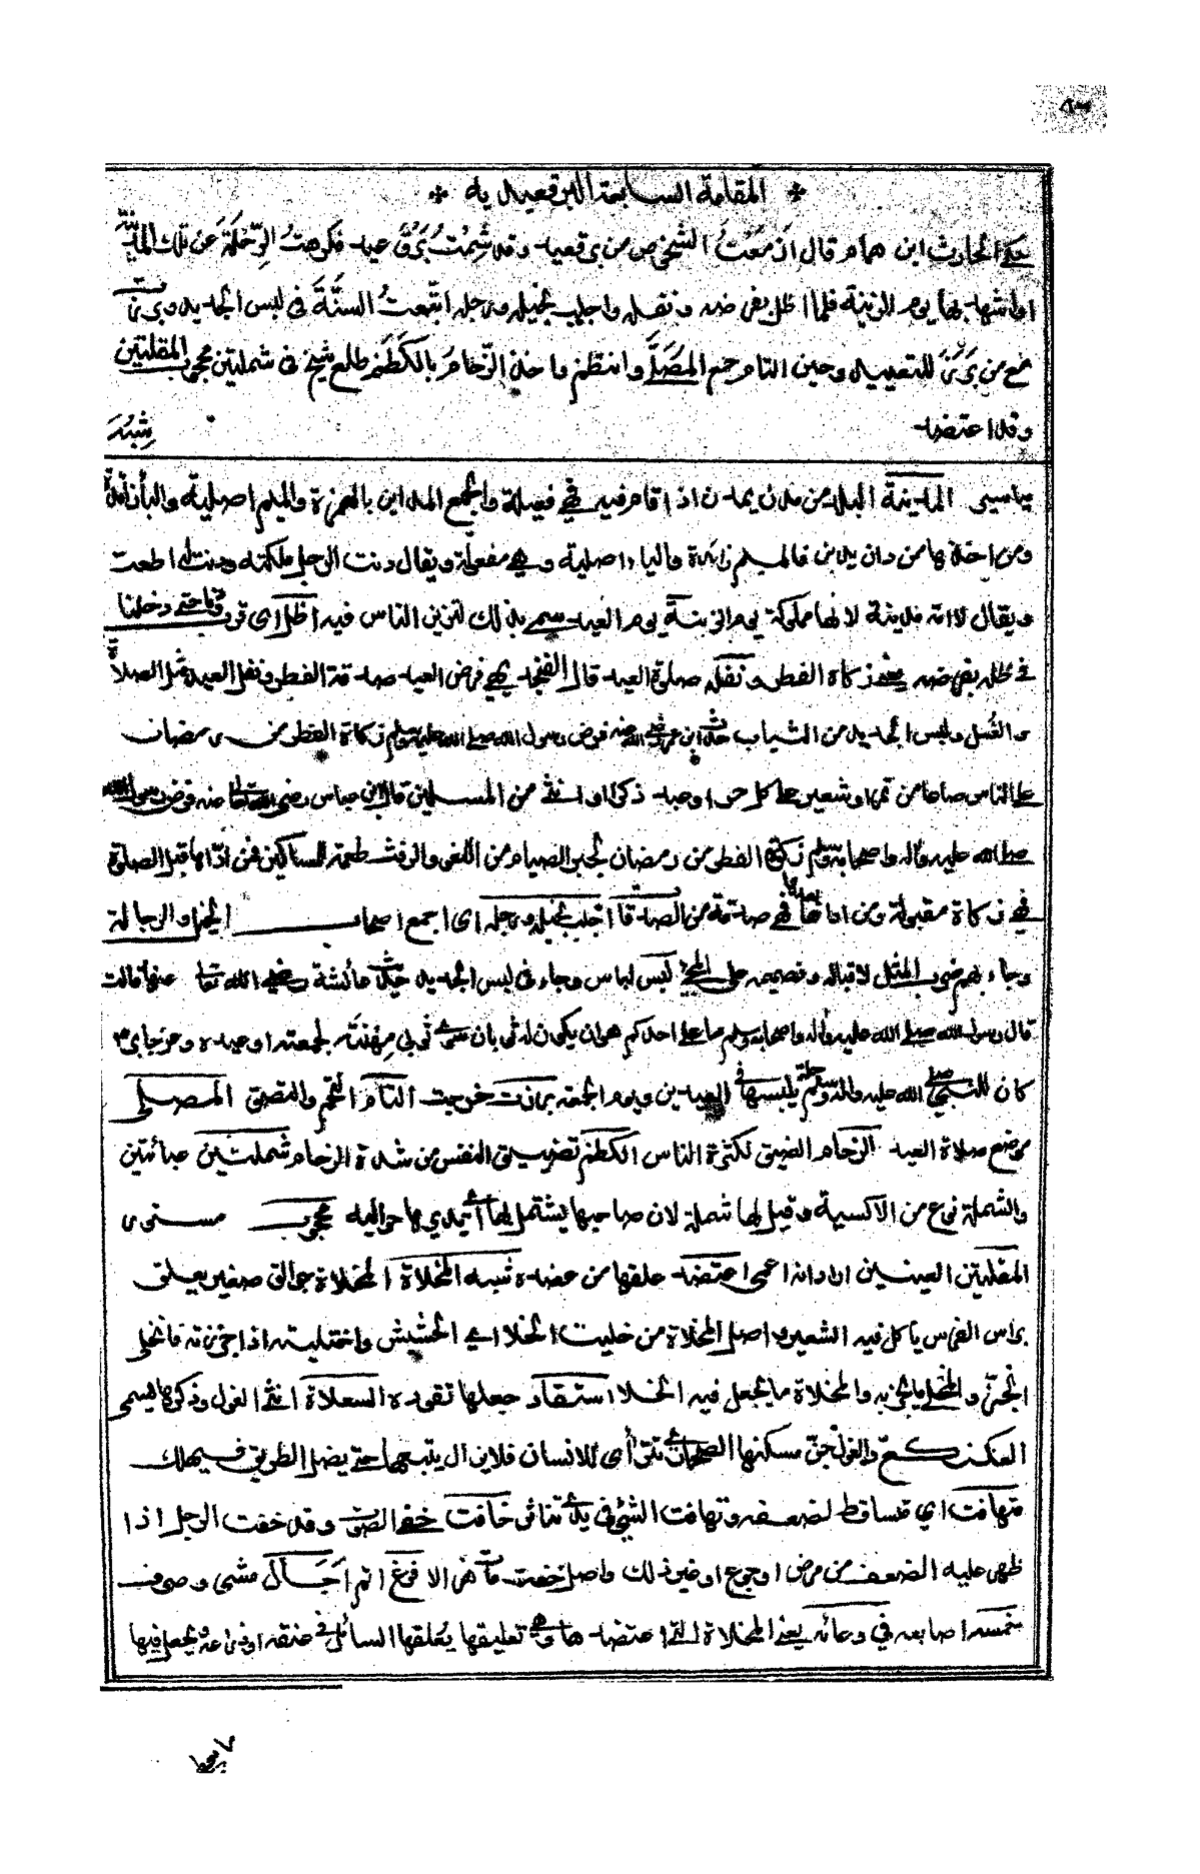 * المقامة السابعة البرقعيدية *
حكى الحارث ابن همام قال ازمعت الشخوص من برقعيد وقد شمت برق عيد فكرهت الرحلة عن تلك المدينة
او اشهد بها يوم الزينة فلما اظل بفرضه ونفله واجلب بخيله ورجله اتبعت السنة في لبس الجديد وبرزت
مع من برز للتعييد وحين التام جمع المصلى وانتظم واخذ الزحام بالكظم طلع شيخ في شملتين محجوب المقلتين
وقد اعتضد شبه
المدينة البلد من مدن يمدن اذا اقام فيه فهي فعيلة والجمع المداين بالهمزة والميم اصلية والياء زائدة
ومن اخذها من دان يدين فالميم زائدة والياء اصلية وهي مفعلة ويقال دنت الرجل ملكته ودنت له اطعت
ويقال للامة مدينة لانها مملوكة يوم الزينة يوم العيد سمي بذلك لتزين الناس فيه اظل اى قرب حتى دخلنا
في ظله بفرضه زكاة الفطر ونفله صلوة العيد قال الفنجديهي فرض العيد صدقة الفطر ونفل العيد مثل الصلاة
والغسل ولبس الجديد من الثياب ابن عمر فرض رسول الله صلى الله عليه وسلم زكاة الفطر من رمضان
على الناس صاعا من تمر او شعير على كل حر او عبد ذكر او انثى من المسلمين قال ابن عباس رضي الله تعالى عنه فرض رسول الله
صلى الله عليه واله واصحابه وسلم زكوة الفطر من رمضان الصيام من اللغو والرفث طعمة للمساكين فمن اداها قبل الصلوة
فهي زكاة مقبولة ومن اداها بعدها فهي صدقة من الصدقات اجلب بخيله ورجله اى اجمع اصحاب الخيل والرجالة
وجاء بهم ضرب المثل لاقباله على لبس لباس وجاء في لبس الجديد حديث عائشة رضي الله تعا عنها قالت
قال رسول الله صلى الله عليه واله واصحابه وسلم ما على احدكم ان يكون له ثوبان سوى ثوبي مهنته لجمعته او عيده وعن جابر
كان للنبي صلى الله عليه واله وسلم حلة يلبسها في العيدين ويوم الجمعة برزت خرجت التام التحم والتصق المصلى
موضع صلاة العيد الزحام الضيق لكثرة الناس الكظم تضييق النفس من شدة الزحام شملتين عبائتين
والشملة نوع من الاكسية وقيل لها شملة لان صاحبها يشتمل بها حواليه محجوب مستور
المقلتين العينين اراد انه اعمى اعتضد علقها من عضده شبه المخلاة المخلاة جوالق صغير يعلق
براس الفرس ياكل فيه الشعير واصل المخلاة من خليت الخلا اي الحشيش واختليته اذا جززته فانخلى
والمخلاة ما يجعل فيه الخلا استقاد جعلها تقوده السعلاة انثى الغول وذكرها يسمى
مسكنها تترأى للانسان فلا يزال يتبعها حتى يضل الطريق فيهلك
متهافت اي متساقط لضعفه وتهافت الشئ في يدي تناثر خافت خفي الصوت وقد خفت الرجل اذا
ظهر عليه الضعف من مرض او جوع او غير ذلك واصل خفت اجال مشى وصرف
خمسه اصابعه في وعائه يعني المخلاة التي اعتضدها تعليقها يعلقها السائل في عنقه او ذراعه ويجعل فيها